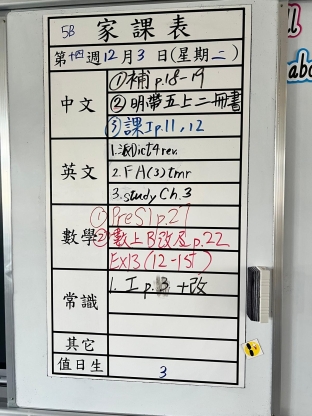 5B 家課表
第十四週12月3日(星期二)
中文
①補p.18-19
②明帶五上二冊書
③課Ip.11,12
英文
1.派Dict4rev.
2.FA(3)tmr
3.studyCh.3
數學
①PreS1p.27
②數上B改及p.22
Ex13(12-1st)
常識
1. I p.3 +改
其它
值日生
3